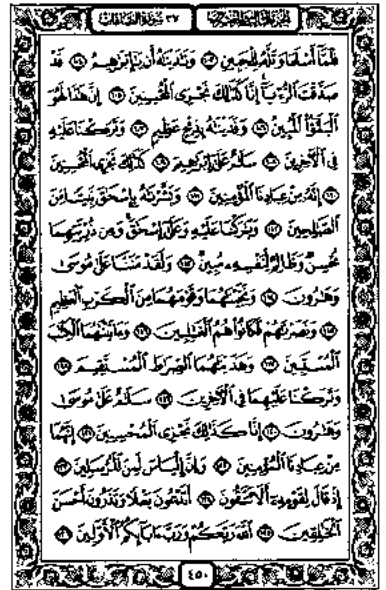 الجزء الثالث والعشرون ٣٧ سورة الصافات
فَلَمَّا أَسْلَمَا وَتَلَّهُ لِلْجَبِينِ ١٠٣ وَنَادَيْنَاهُ أَن يَا إِبْرَاهِيمُ ١٠٤ قَدْ
صَدَّقْتَ الرُّءْيَا إِنَّا كَذَلِكَ نَجْزِي الْمُحْسِنِينَ ١٠٥ إِنَّ هَذَا لَهُوَ
الْبَلَاؤُا الْمُبِينُ ١٠٦ وَفَدَيْنَاهُ بِذِبْحٍ عَظِيمٍ ١٠٧ وَتَرَكْنَا عَلَيْهِ
فِي الْآخِرِينَ ١٠٨ سَلَامٌ عَلَى إِبْرَاهِيمَ ١٠٩ كَذَلِكَ نَجْزِي الْمُحْسِنِينَ
١١٠ إِنَّهُ مِنْ عِبَادِنَا الْمُؤْمِنِينَ ١١١ وَبَشَّرْنَاهُ بِإِسْحَاقَ نَبِيًّا مِّنَ
الصَّالِحِينَ ١١٢ وَبَارَكْنَا عَلَيْهِ وَعَلَى إِسْحَاقَ وَمِن ذُرِّيَّتِهِمَا
مُحْسِنٌ وَظَالِمٌ لِّنَفْسِهِ مُبِينٌ ١١٣ وَلَقَدْ مَنَنَّا عَلَى مُوسَى
وَهَارُونَ ١١٤ وَنَجَّيْنَاهُمَا وَقَوْمَهُمَا مِنَ الْكَرْبِ الْعَظِيمِ
١١٥ وَنَصَرْنَاهُمْ فَكَانُوا هُمُ الْغَالِبِينَ ١١٦ وَآتَيْنَاهُمَا الْكِتَابَ
الْمُسْتَبِينَ ١١٧ وَهَدَيْنَاهُمَا الصِّرَاطَ الْمُسْتَقِيمَ ١١٨
وَتَرَكْنَا عَلَيْهِمَا فِي الْآخِرِينَ ١١٩ سَلَامٌ عَلَى مُوسَى
وَهَارُونَ ١٢٠ إِنَّا كَذَلِكَ نَجْزِي الْمُحْسِنِينَ ١٢١ إِنَّهُمَا
مِنْ عِبَادِنَا الْمُؤْمِنِينَ ١٢٢ وَإِنَّ إِلْيَاسَ لَمِنَ الْمُرْسَلِينَ ١٢٣
إِذْ قَالَ لِقَوْمِهِ أَلَا تَتَّقُونَ ١٢٤ أَتَدْعُونَ بَعْلًا وَتَذَرُونَ أَحْسَنَ
الْخَالِقِينَ ١٢٥ اللَّهَ رَبَّكُمْ وَرَبَّ آبَائِكُمُ الْأَوَّلِينَ ١٢٦
٤٥٠